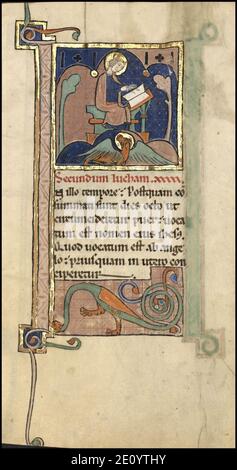 Secundum lucham. xxxx.
In illo tempore: Postquam co
summati sunt dies octo ut
circumcideretur puer: voca
tum est nomen eius ihesus
Quod vocatum est ab ange
lo: priusquam in utero con
ciperetur.
alamy
Image ID: 2E0YTHY
www.alamy.com